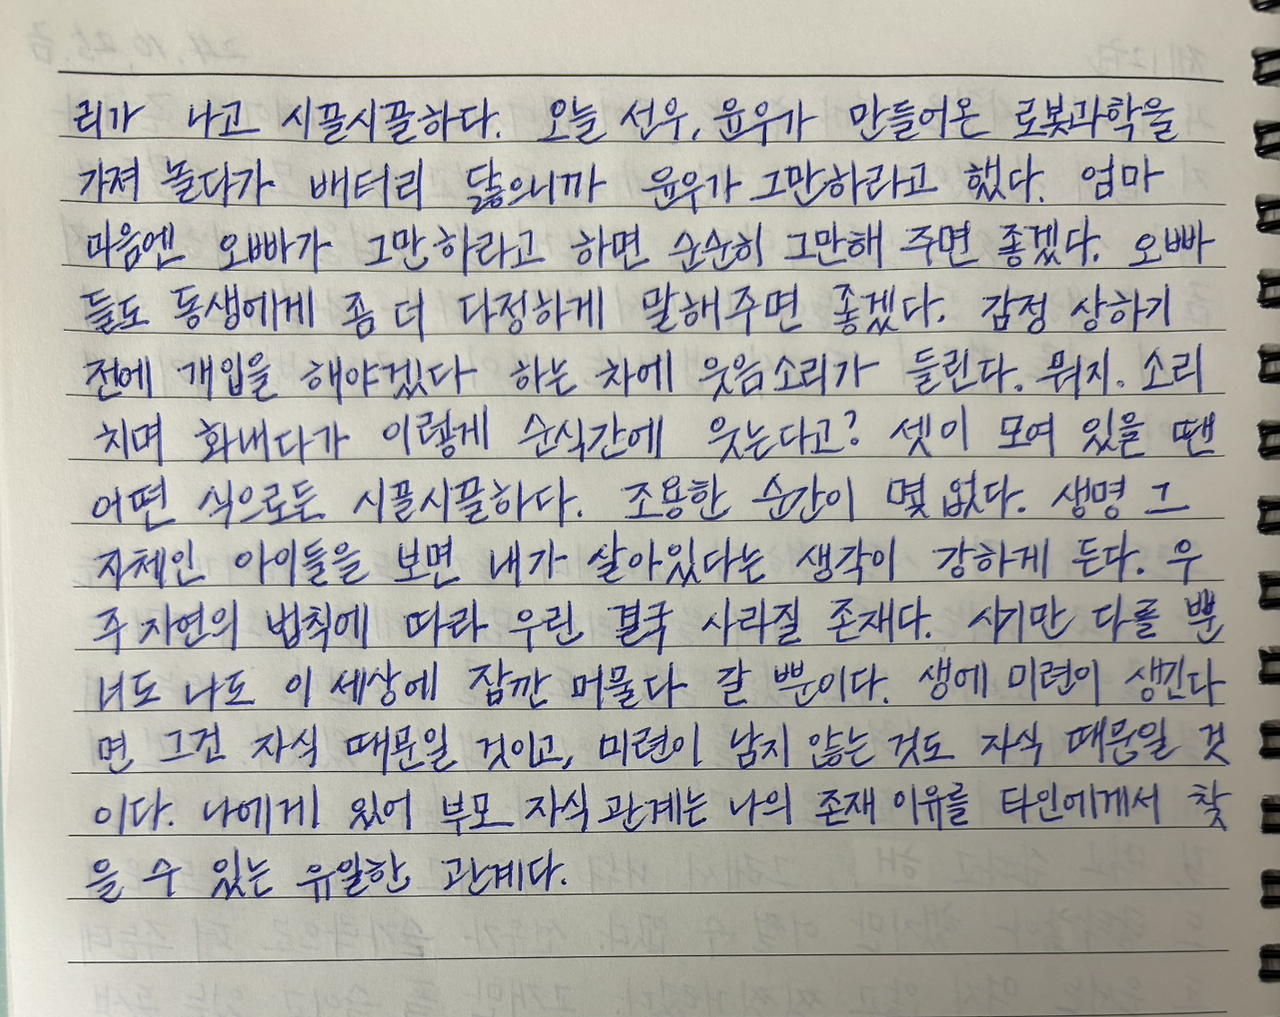 리가 나고 시끌시끌하다. 오늘 선우, 윤우가 만들어온 로봇과학을
가져 놀다가 배터리 닳으니까 윤우가 그만하라고 했다. 엄마
마음엔 오빠가 그만하라고 하면 순순히 그만해 주면 좋겠다. 오빠
들도 동생에게 좀 더 다정하게 말해주면 좋겠다. 감정 상하기
전에 개입을 해야겠다 하는 차에 웃음소리가 들린다. 뭐지. 소리
치며 화내다가 이렇게 순식간에 웃는다고? 셋이 모여 있을 땐
어떤 식으로든 시끌시끌하다. 조용한 순간이 몇 없다. 생명 그
자체인 아이들을 보면 내가 살아있다는 생각이 강하게 든다. 우
주 자연의 법칙에 따라 우린 결국 사라질 존재다. 시기만 다를 뿐
너도 나도 이 세상에 잠깐 머물다 갈 뿐이다. 생에 미련이 생긴다
면 그건 자식 때문일 것이고, 미련이 남지 않는 것도 자식 때문일 것
이다. 나에게 있어 부모 자식 관계는 나의 존재 이유를 타인에게서 찾
을 수 있는 유일한 관계다.